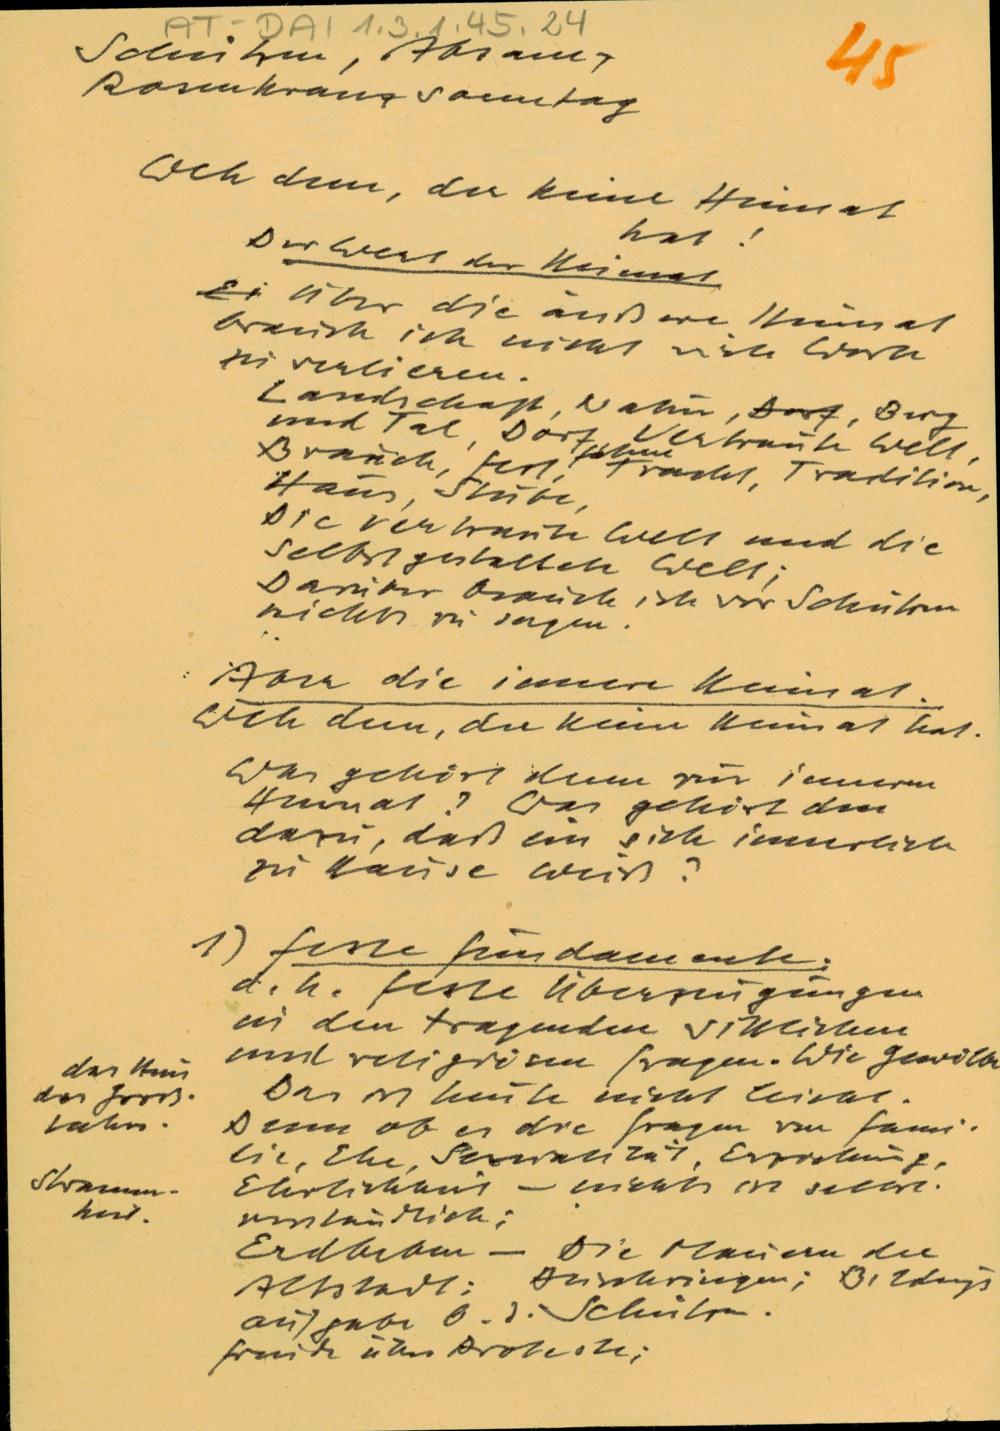 AT-DAI 1.3.1.45.24
45
Schützen, Absam,
Rosenkranzsonntag
Weh dem, der keine Heimat
hat!
Der Wert der Heimat
Ei Über die äußere Heimat
brauch ich nicht viele Worte
zu verlieren.
Landschaft, Natur, Dorf, Berg
und Tal, Dorf, Vertraute Welt,
Brauch, Fest, Fahne Tracht, Tradition,
Haus, Stube,
Die vertraute Welt und die
selbstgestaltete Welt;
Darüber brauch ich vor Schützen
nichts zu sagen.
Aber die innere Heimat.
Weh dem, der keine Heimat hat.
Was gehört denn zur inneren
Heimat? Was gehört denn
dazu, daß ein sich innerlich
zu Hause weiß?
1) Feste Fundamente:
d. h. feste Überzeugungen
in den tragenden sittlichen
und religiösen Fragen. Wie Gewölbe
das Haus
des Groß-
vaters.
Das ist heute nicht leicht.
Denn ob es die Fragen von Fami-
lie, Ehe, Sexualität, Erziehung,
Stramm-
heit.
Ehrlichkeit – nichts ist selbst-
verständlich;
Erdbeben – Die Mauern der
Altstadt: Bildungs
aufgabe b. d. Schützen.
Freude über Proteste;